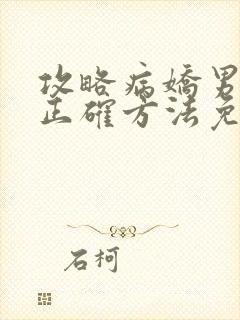 攻略病嬌男
正確方法免
石柯